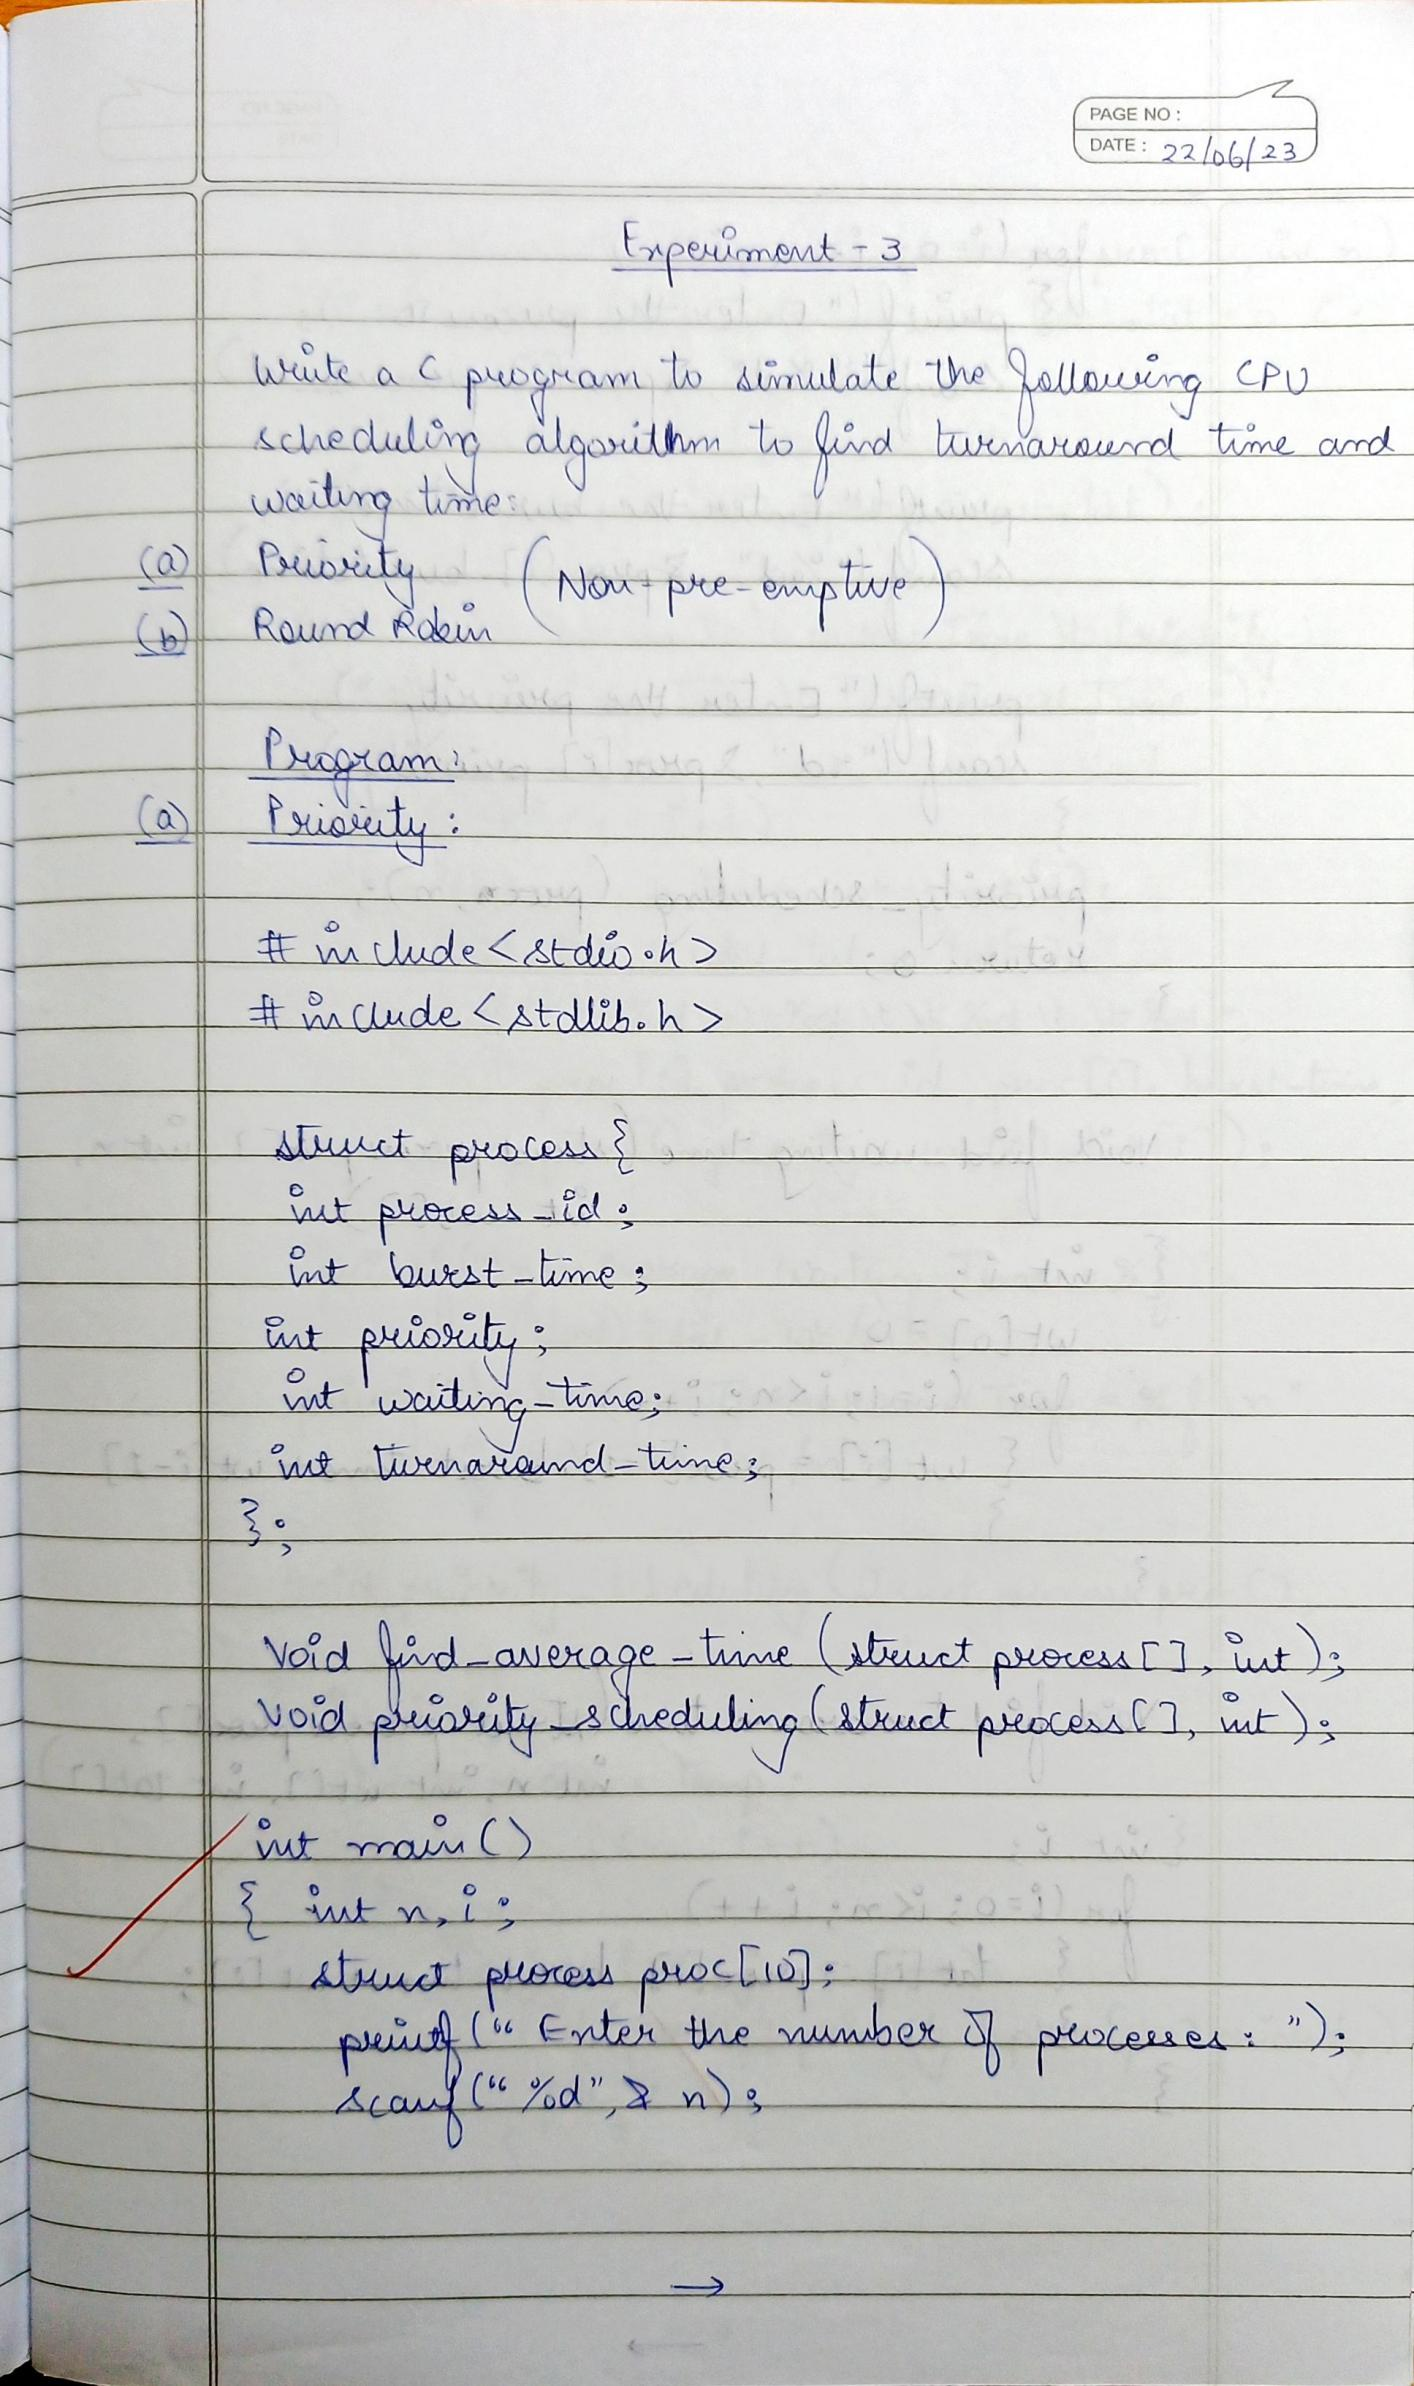 PAGE NO :
DATE : 22/06/23
Experiment - 3
Write a C program to simulate the following CPU
scheduling algorithm to find turnaround time and
waiting time:
(a) Priority (Non-pre-emptive)
(b) Round Robin
Program:
(a) Priority :
# include <stdio.h>
# include <stdlib.h>
struct process {
int process_id ;
int burst_time ;
int priority ;
int waiting_time ;
int turnaround_time ;
} ;
Void find_average_time (struct process [ ], int ) ;
Void priority_scheduling (struct process [ ], int ) ;
int main ( )
{ int n, i ;
struct process proc [10] ;
printf (" Enter the number of processes : ") ;
scanf (" %d", & n) ;
→